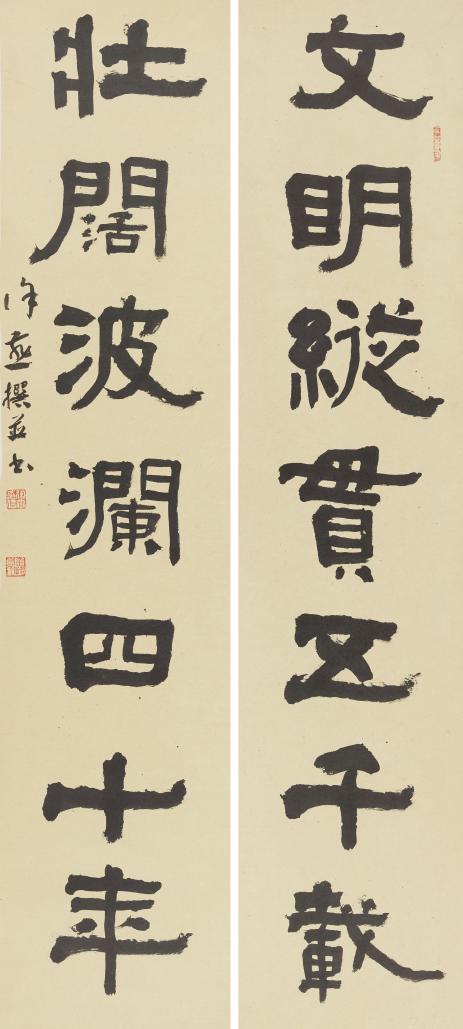 文明縱貫五千載
壯闊波瀾四十年
撰并書